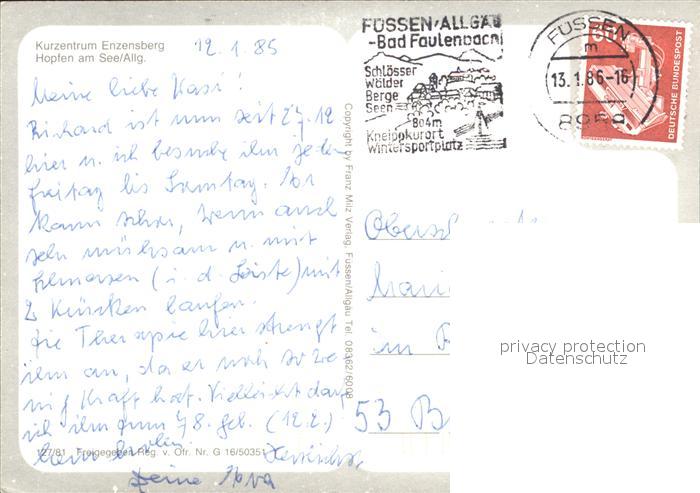 Kurzentrum Enzensberg
Hopfen am See/Allg.
12.1.85
Meine liebe Kasi!
Richard ist nun seit 27.12
hier u. ich besuche ihn jeden
Freitag bis Samstag. Er
kann schon, wenn auch
sehr mühsam u. mit
Schmerzen (i. d. Leiste) mit
2 Krücken laufen.
Die Therapie hier strengt
ihn an, da er noch so we-
nig Kraft hat. Vielleicht darf
ich ihn zum 78. Geb. (12.2.)
Herzlichst
Deine
127/81 Freigegeben Reg. v. Obr. Nr. G 16/50351
Copyright by Franz Milz Verlag, Füssen/Allgäu Tel. 08362/6008
FÜSSEN/ALLGÄU
-Bad Faulenbach
Schlösser
Wälder
Berge
Seen
804m
Kneippkurort
Wintersportplatz
FÜSSEN
m
13.1.86-16
8958
60
DEUTSCHE BUNDESPOST
im
53 B
privacy protection
Datenschutz